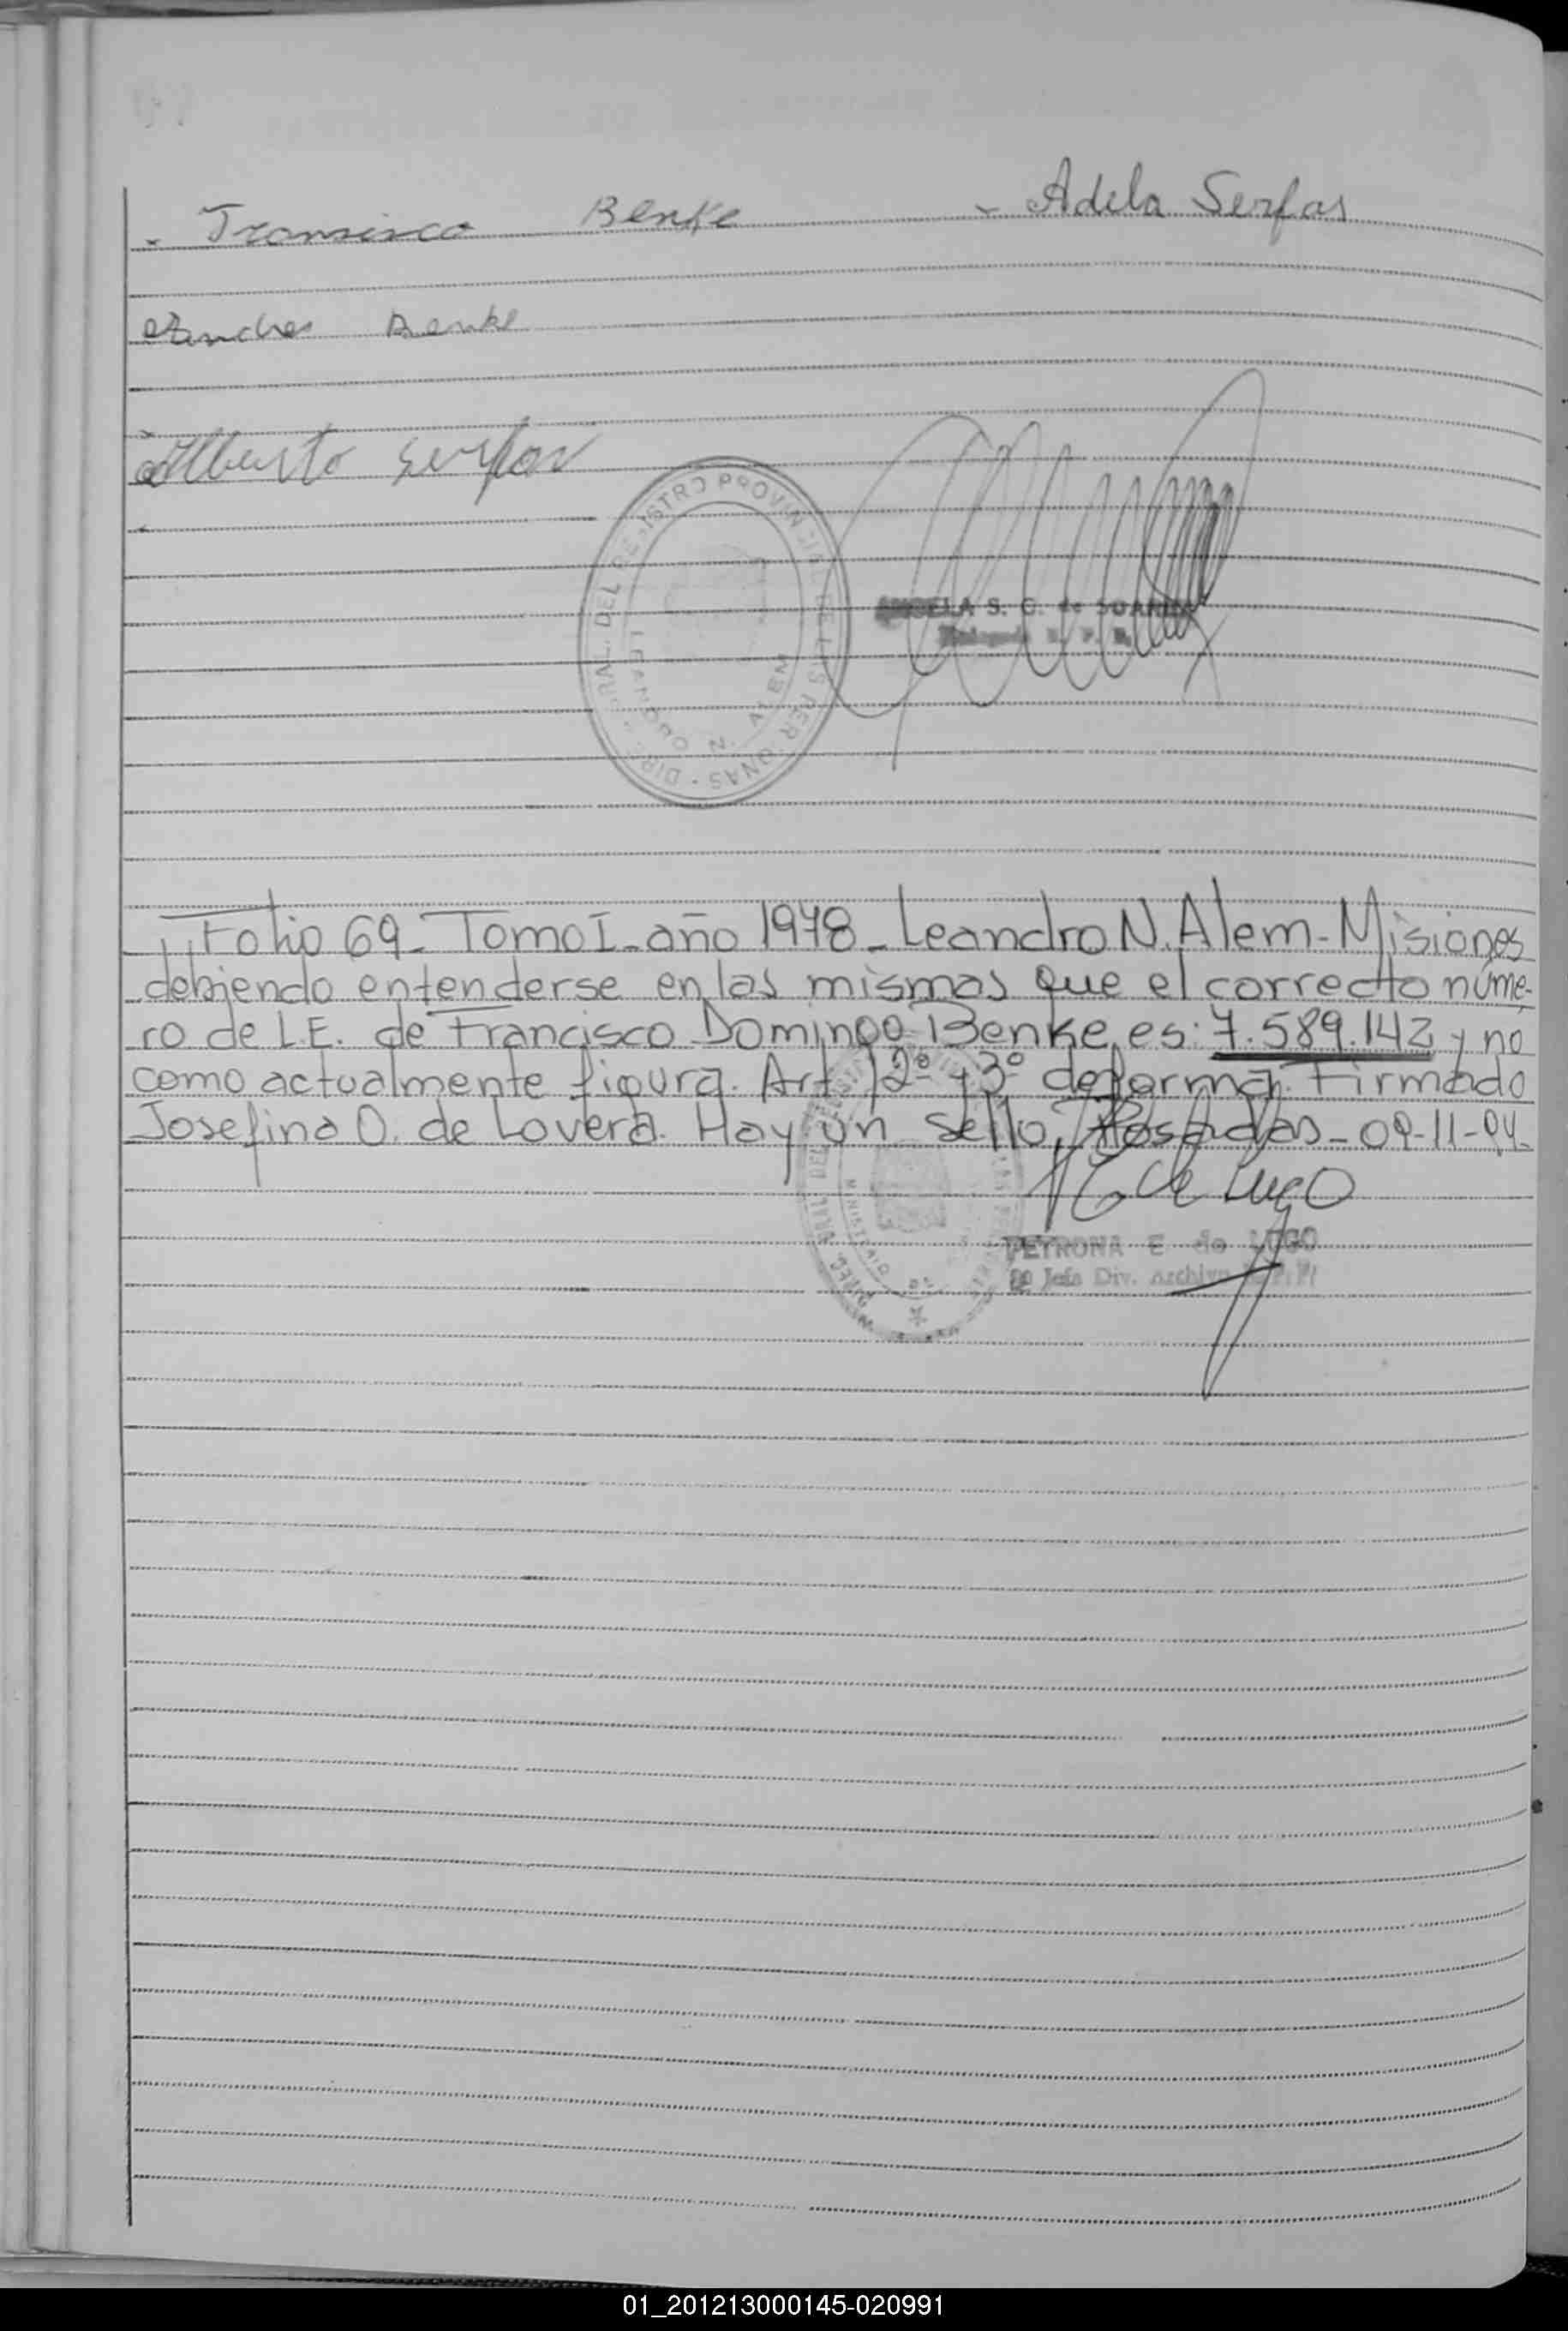 - Fransisco Benke - Adela Serfas
Benke
Alberto Serfas
DEL REGISTRO PROVINCIAL DE LAS PERSONAS
LEANDRO N. ALEM
ANGELA S. G. de
Folio 69_ Tomo I_ año 1978_ Leandro N. Alem_ Misiones
debiendo entenderse en las mismas que el correcto núme-
ro de L.E. de Francisco Domingo Benke, es: 7.589.142 y no
como actualmente figura. Art. 12º y 3º de forma. Firmado
Josefina O. de Lovera. Hay un sello, Posadas_ 09-11-94_
de Lugo
PETRONA E de LUGO
Jefa Div. Archivo
01_201213000145-020991